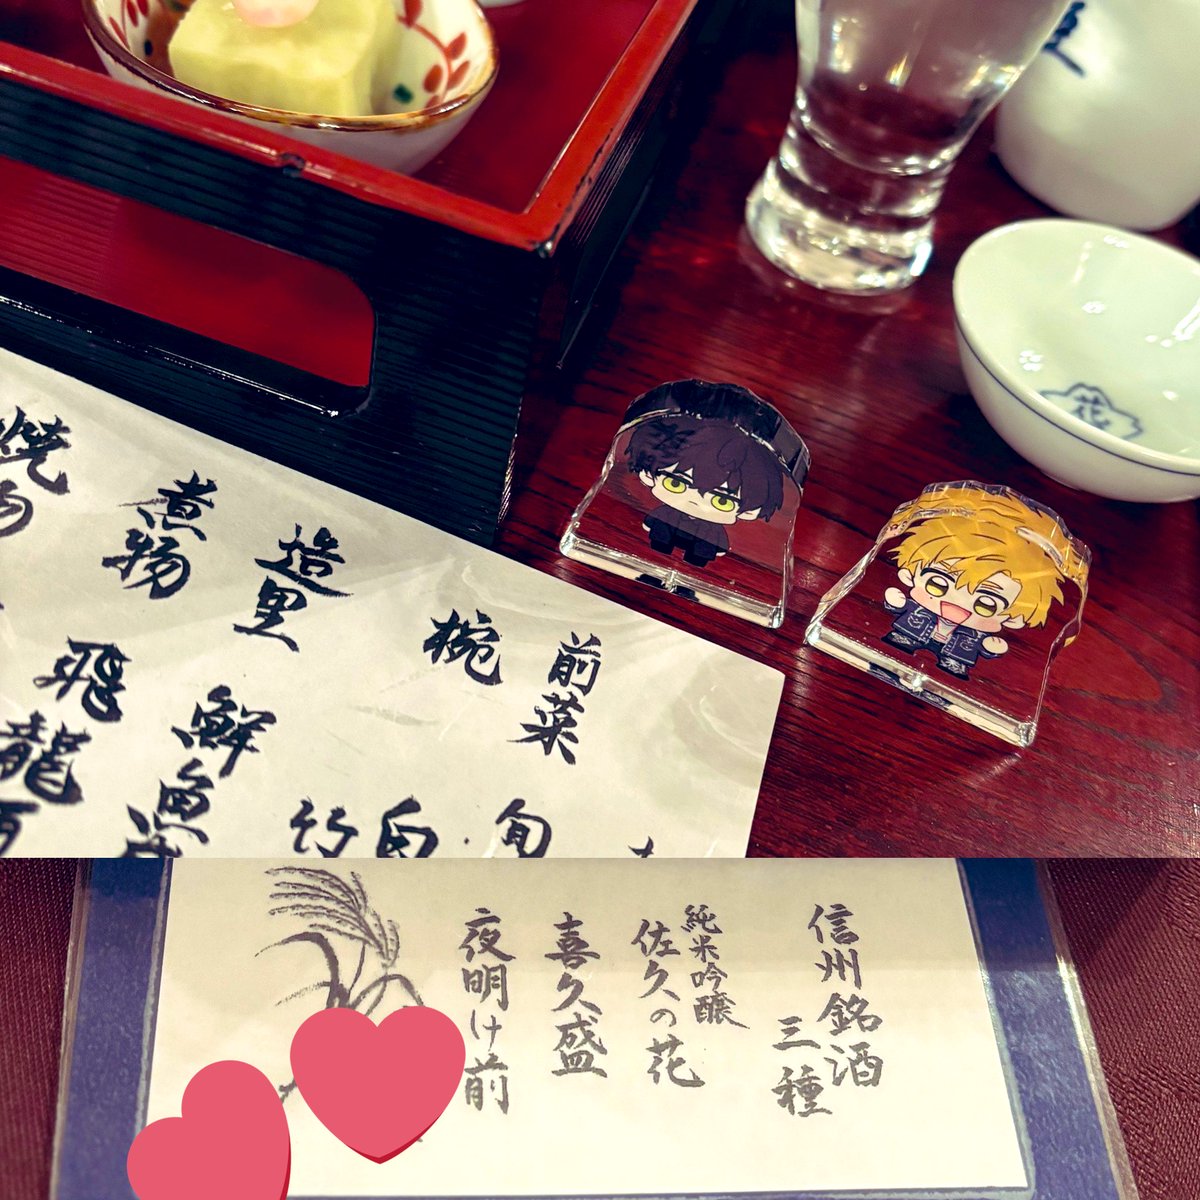 前菜
椀
造里
煮物
旬
白
竹
鮮魚
飛龍
花
信州銘酒
三種
純米吟醸
佐久の花
喜久盛
夜明け前